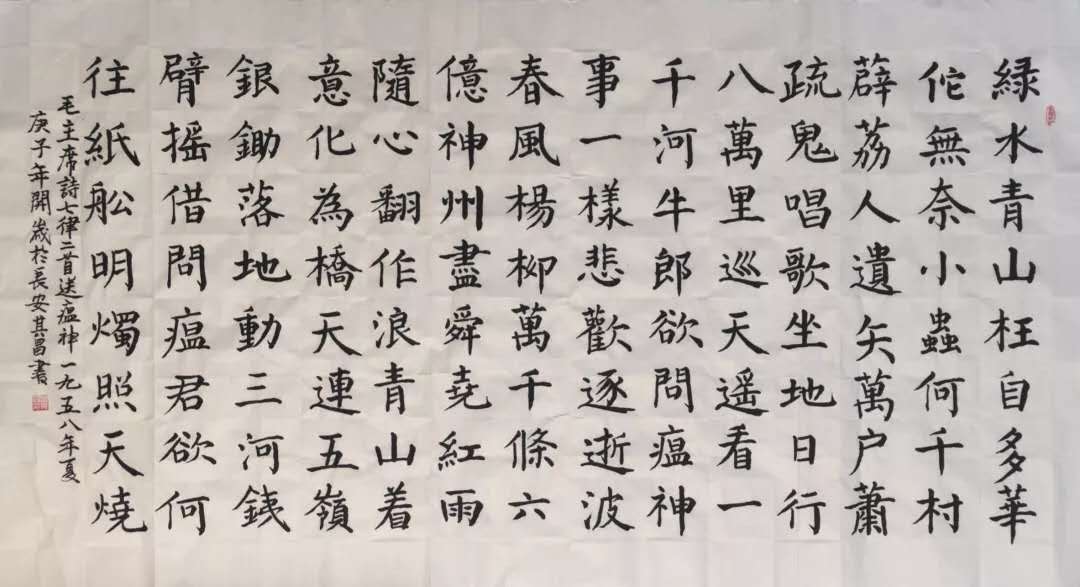 緑水青山枉自多華
佗無奈小蟲何千村
薜荔人遺矢萬户蕭
疏鬼唱歌坐地日行
八萬里巡天遥看一
千河牛郎欲問瘟神
事一樣悲歡逐逝波
春風楊柳萬千條六
億神州盡舜堯紅雨
隨心翻作浪青山着
意化為橋天連五嶺
銀鋤落地動三河銕
臂摇借問瘟君欲何
往紙舩明燭照天燒
毛主席詩七律二首送瘟神一九五八年夏
庚子年開歲於長安其昌書